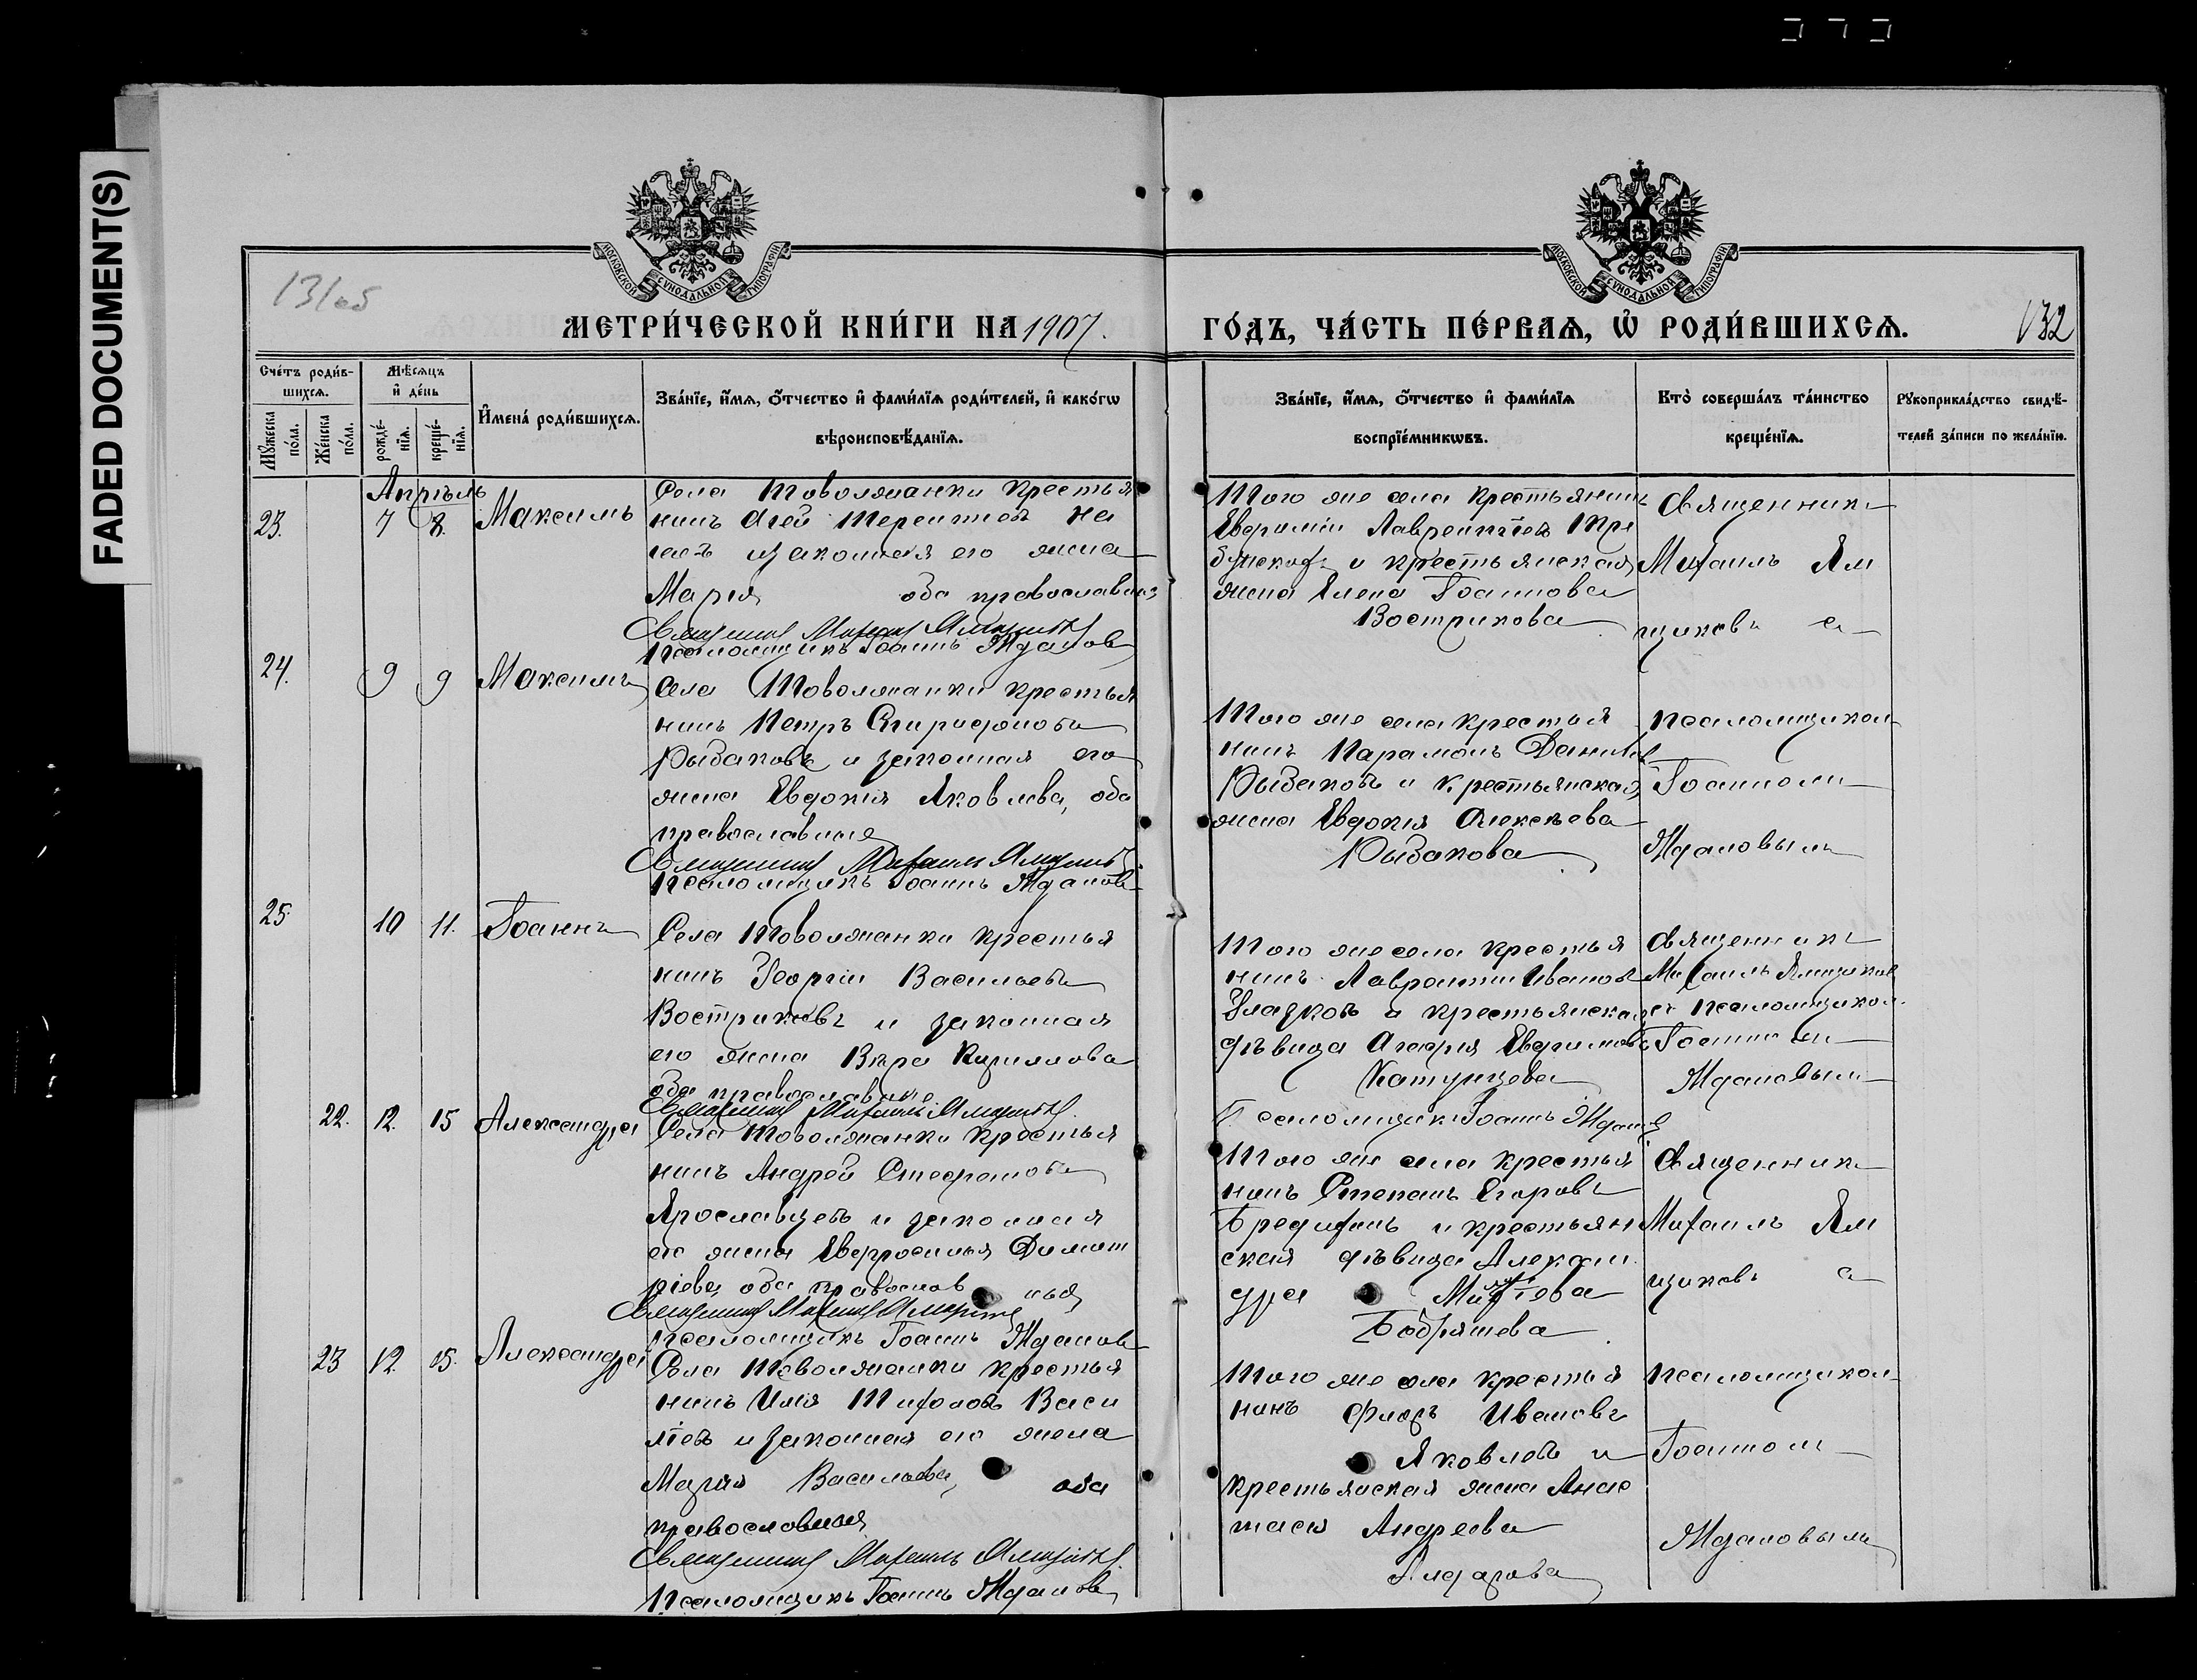 FADED DOCUMENT(S)
МОСКОВСКОЙ СѴНОДАЛЬНОЙ ТИПОГРАФІИ
МОСКОВСКОЙ СѴНОДАЛЬНОЙ ТИПОГРАФІИ
МЕТРИ́ЧЕСКОЙ КНИ́ГИ НА 1907.
ГО́ДЪ, ЧА́СТЬ ПЕ́РВАѦ, Ѡ҆ РОДИ́ВШИХСѦ.
132
Сче́тъ роди́в-
шихсѧ.
Мꙋ́жеска по́ла.
Же́нска по́ла.
Мѣ́сѧцъ
и҆ де́нь
рожде́-
нїѧ.
креще́-
нїѧ.
И҆мена̀ роди́вшихсѧ.
Зва́нїе, и҆́мѧ, ѻ҆́тчество и҆ фами́лїѧ роди́телей, и҆ како́гѡ
вѣроисповѣ́данїѧ.
Зва́нїе, и҆́мѧ, ѻ҆́тчество и҆ фами́лїѧ
воспрїе́мникѡвъ.
Кто̀ соверша́лъ та́инство
креще́нїѧ.
Рꙋкоприкла́дство свидѣ́-
телей за́писи по жела́нїю.
Апрѣль
23. 7 8. Максимъ
Села Товолжанки крестья
нинъ Агей Терентіевъ
законная его жена
Марія оба православные
Священникъ Михаилъ Ямщиковъ
Псаломщикъ Іоаннъ Ждановъ
Того же села крестьянинъ
Евфимій Лаврентіевъ
и крестьянская
жена Елена Іоаннова
Вострикова
Священникъ
Михаилъ Ям
щиковъ с
24. 9 9 Максимъ
Села Товолжанки крестья
нинъ Петръ Спиридоновъ
Рыбаковъ и законная его
жена Евдокія Яковлева, оба
православные
Священникъ Михаилъ Ямщиковъ
Псаломщикъ Іоаннъ Ждановъ
Того же села крестья
нинъ Парамонъ Данилов
Рыбаковъ и крестьянская
жена Евдокія Алексѣева
Рыбакова
псаломщиком
Іоанномъ
Ждановымъ
25. 10 11. Іоаннъ
Села Товолжанки крестья
нинъ Георгій Васильевъ
Востриковъ и законная
его жена Вѣра Кириллова
оба православные
Священникъ Михаилъ Ямщиковъ
Того же села крестья
нинъ Лаврентій Ивановъ
Гладковъ и крестьянская
дѣвица Агафія Евфимова
Катунцева
Псаломщикъ Іоаннъ Ждановъ
Священникъ
Михаилъ Ямщиков
с псаломщиком
Іоанномъ
Ждановымъ
22. 12. 15 Александра
Села Товолжанки крестья
нинъ Андрей Стефановъ
Ярославцевъ и законная
его жена Евфросинья Димит
ріева, оба православныя
Священникъ Михаилъ Ямщиковъ
Псаломщикъ Іоаннъ Ждановъ
Того же села крестья
нинъ Степанъ Егоровъ
Бредихинъ и крестьян
ская дѣвица Алексан
дра
Бобряшева
Священникъ
Михаилъ Ям
щиковъ с
23 12. 15. Александра
Села Товолжанки крестья
нинъ Илія Тихоновъ Васи
льевъ и законная его жена
Марія Васильева, оба
православныя
Священникъ Михаилъ Ямщиковъ
Псаломщикъ Іоаннъ Ждановъ
Того же села крестья
нинъ Флоръ Ивановъ
Яковлевъ и
крестьянская жена Анас
тасія Андреева
псаломщиком
Іоанном
Ждановымъ